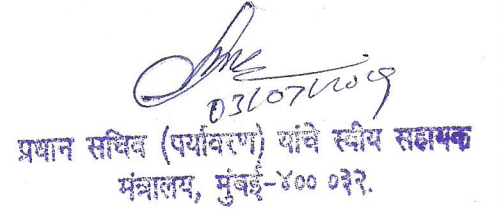 03/07/2019
प्रधान सचिव (पर्यावरण) यांचे स्वीय सहायक
मंत्रालय, मुंबई-४०० ०३२.